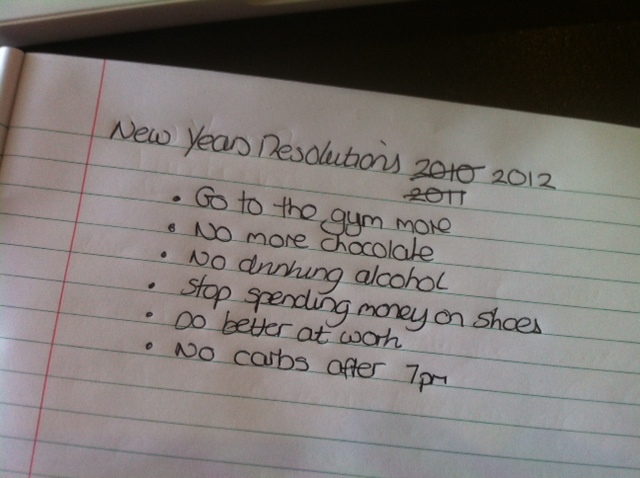 New Years Resolutions 2010 2012
2011
• Go to the gym more
• No more chocolate
• No drinking alcohol
• Stop spending money on shoes
• Do better at work
• No carbs after 7pm